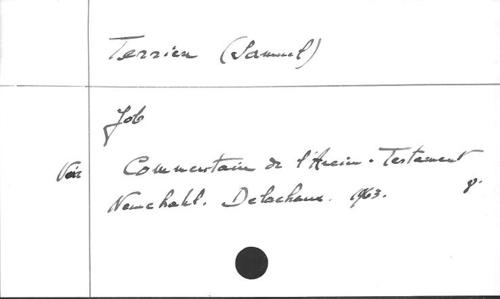 Terrien (Samuel)
Job
Voir Commentaire de l'Ancien-Testament
Neuchatel. Delachaux. 1963. 8°